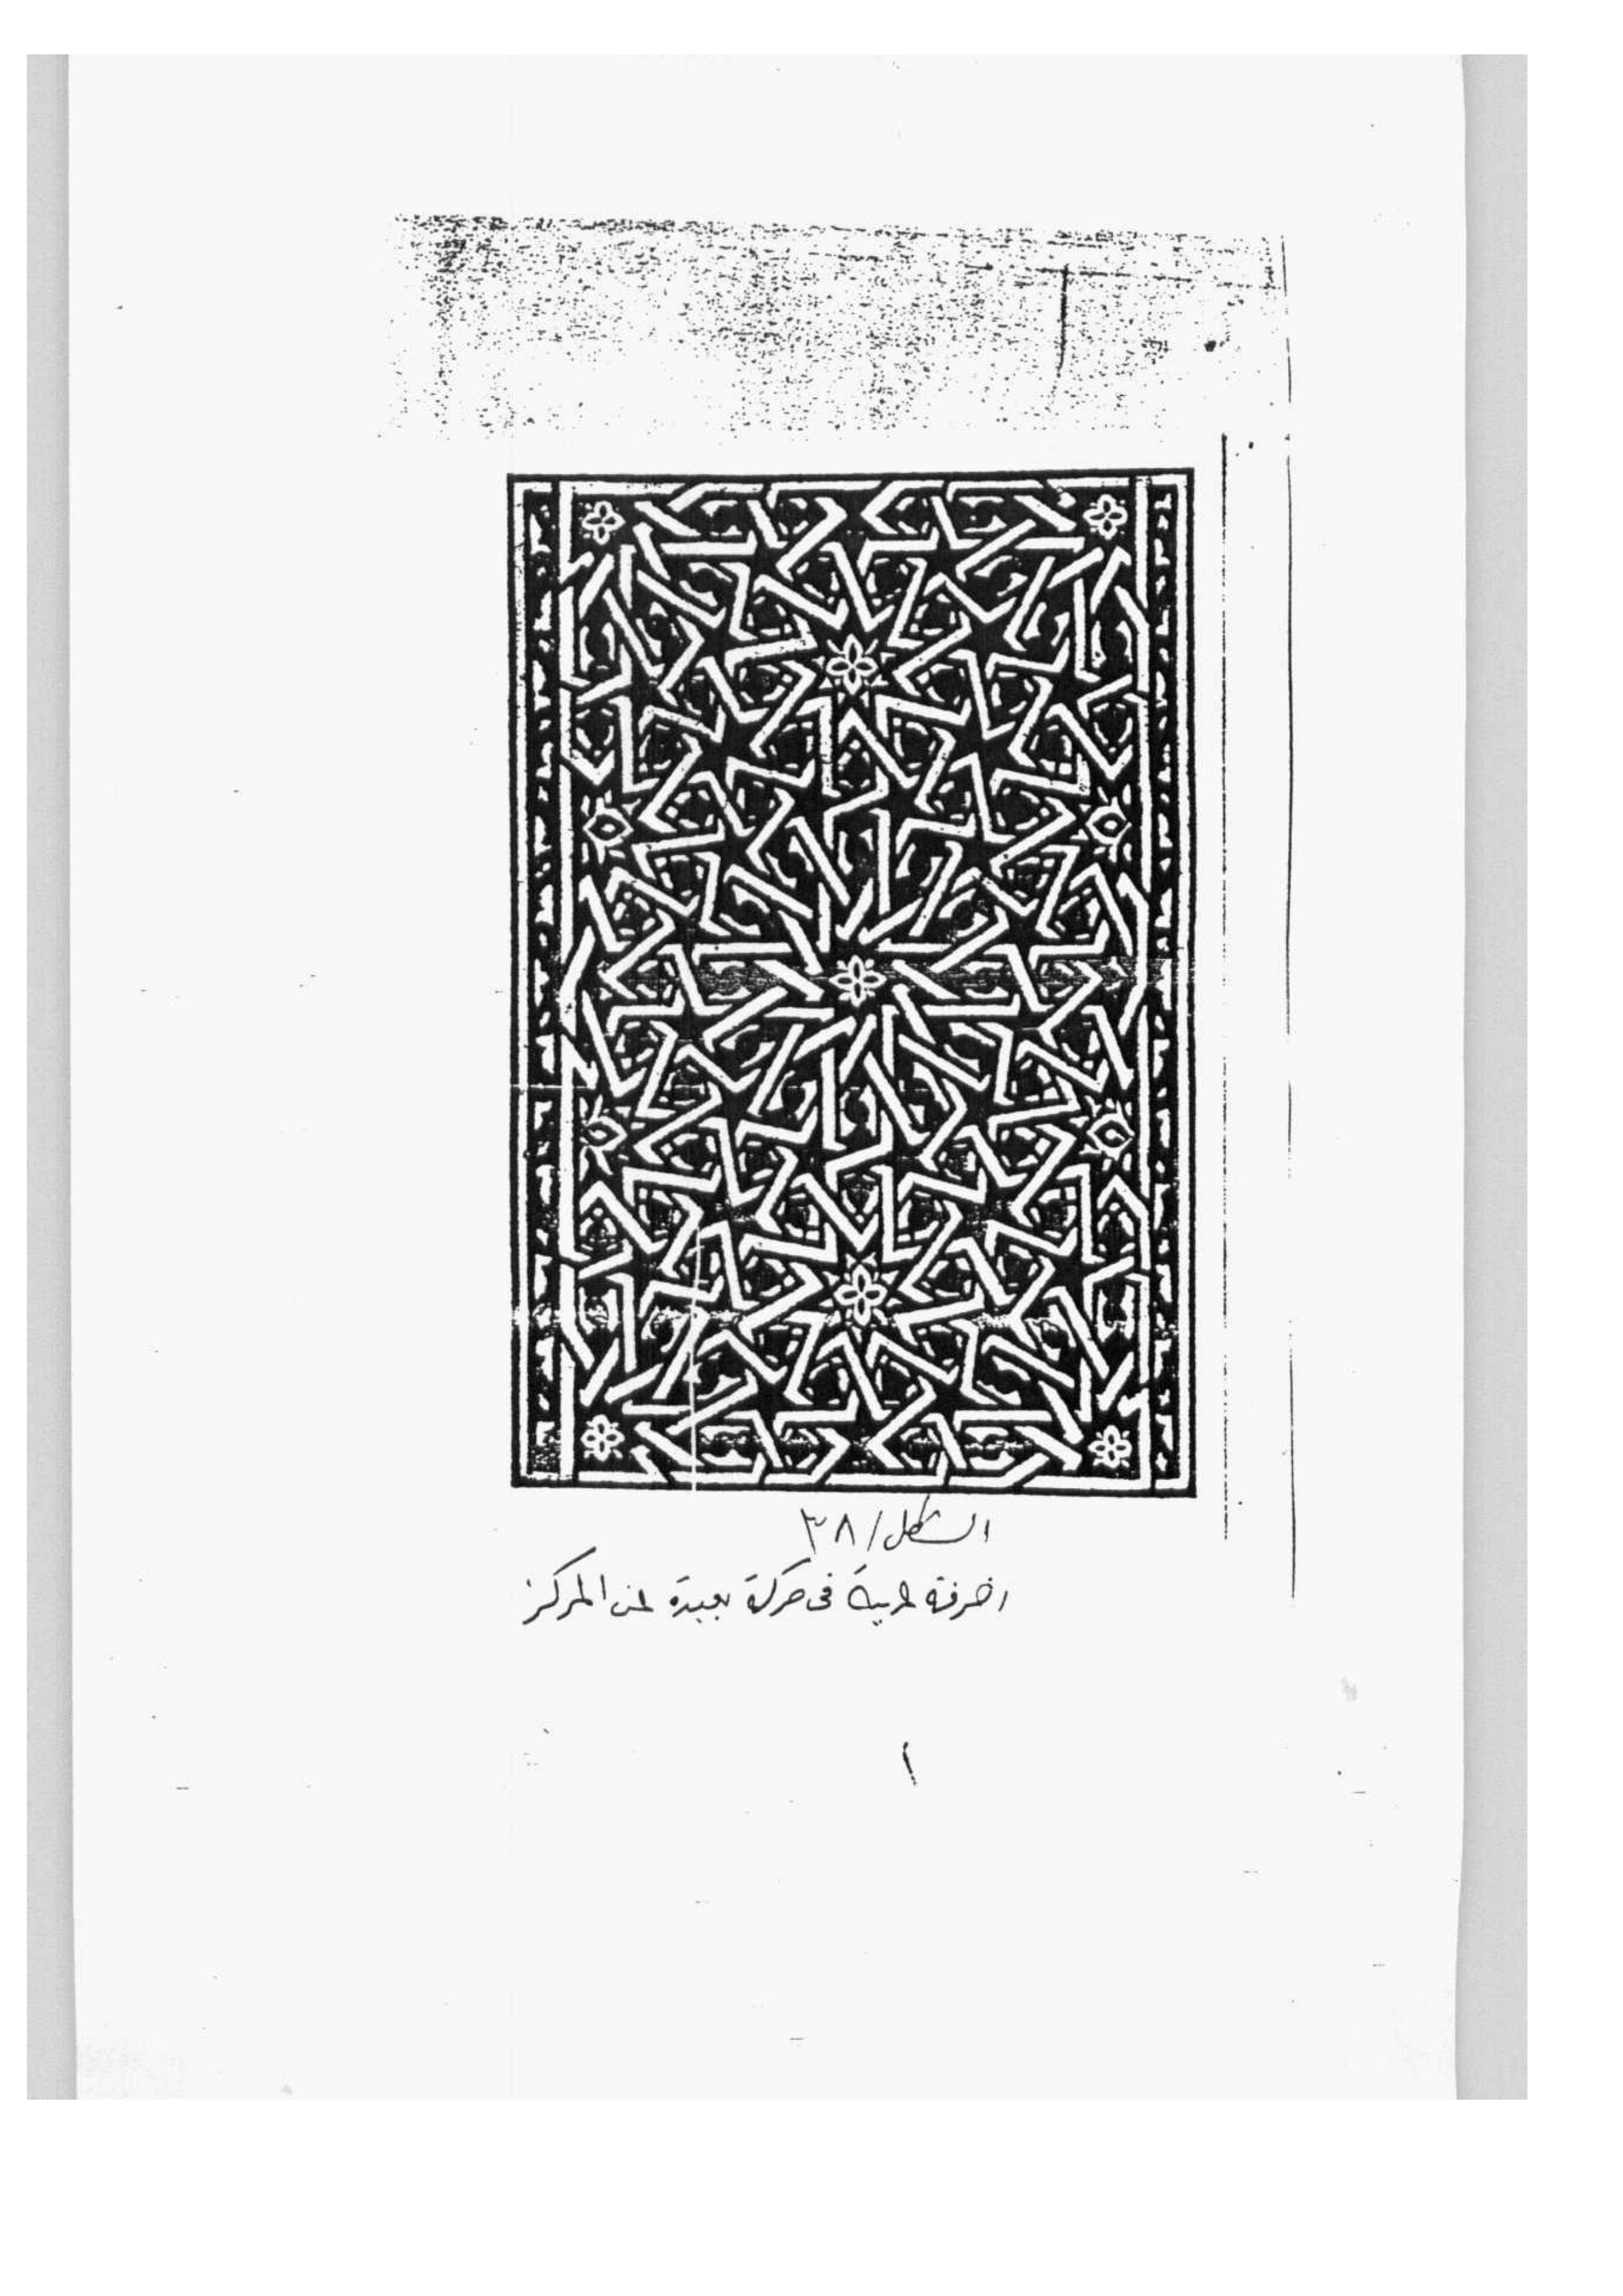 الشكل/٣٨
زخرفة عربية فى حركة بعيدة عن المركز
١